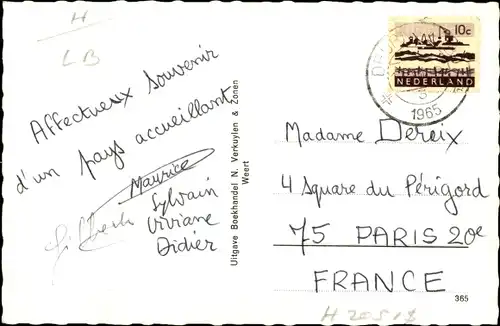 H
LB
Affectueux souvenir
d'un pays accueillant
Maurice
Gilberte
Sylvain
Viviane
Didier
Uitgave Boekhandel N. Verkuylen & Zonen
Weert
10c
NEDERLAND
5
1965
Madame Dereix
4 Square du Périgord
75 PARIS 20e
FRANCE
365